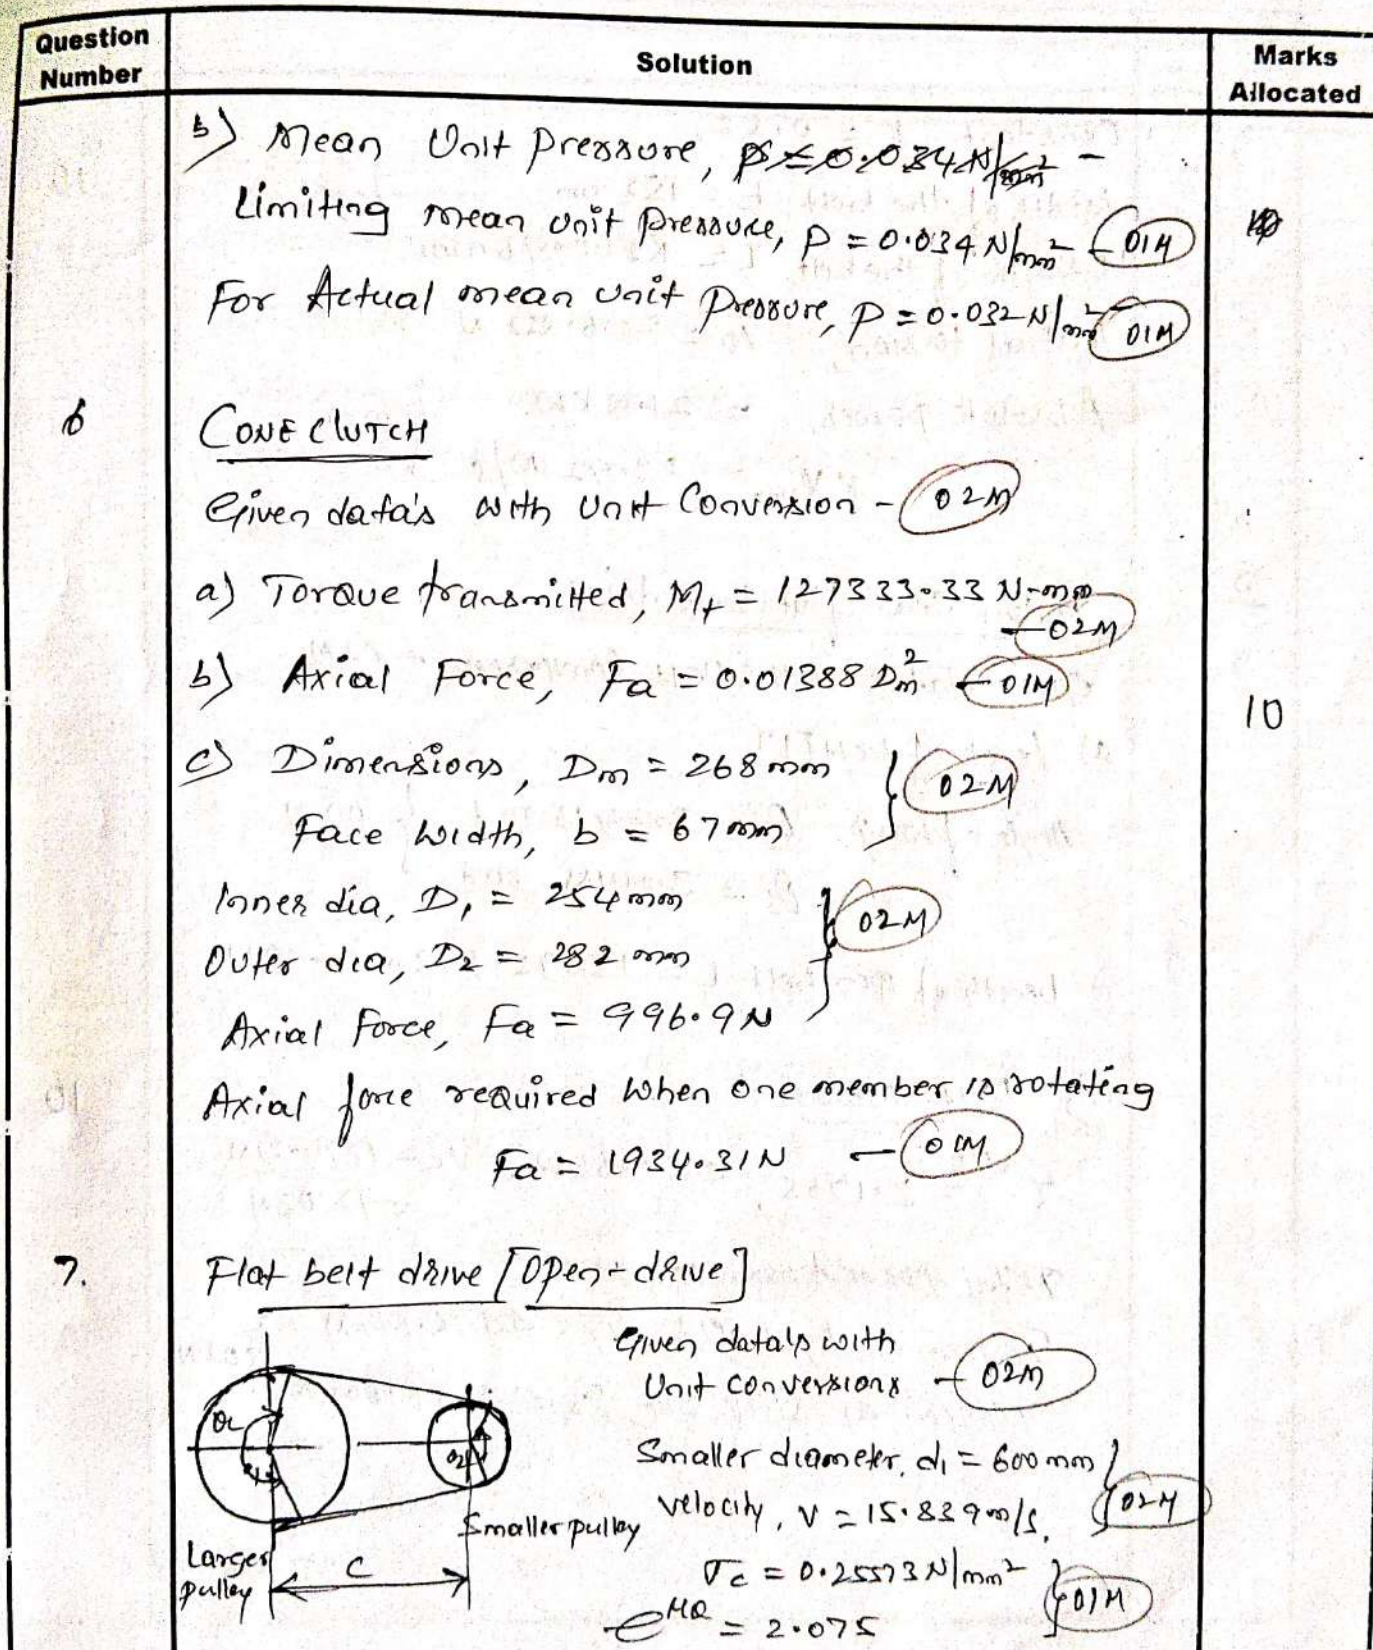 Question Number
Solution
Marks Allocated
b) Mean Unit Pressure, p ≤ 0.034 N/mm² -
Limiting mean unit pressure, p = 0.034 N/mm² - 01M
10
For Actual mean unit Pressure, p = 0.032 N/mm² 01M
6
CONE ClUTCH
Given data's with Unit Conversion - 02M
a) Torque transmitted, Mt = 127333.33 N-mm
- 02M
b) Axial Force, Fa = 0.01388 Dm² - 01M
10
c) Dimensions, Dm = 268 mm
Face Width, b = 67 mm } 02M
Inner dia, D1 = 254 mm
Outer dia, D2 = 282 mm } 02M
Axial Force, Fa = 996.9 N
Axial force required when one member is rotating
Fa = 1934.31 N - 01M
7.
Flat belt drive [Open-drive]
Given data's with
Unit conversions - 02M
θL
θ2
Smaller diameter, d1 = 600 mm
velocity, v = 15.839 m/s. } 02M
Smaller pulley
Larger pulley
C
σc = 0.25573 N/mm²
e^μθ = 2.075 } 01M